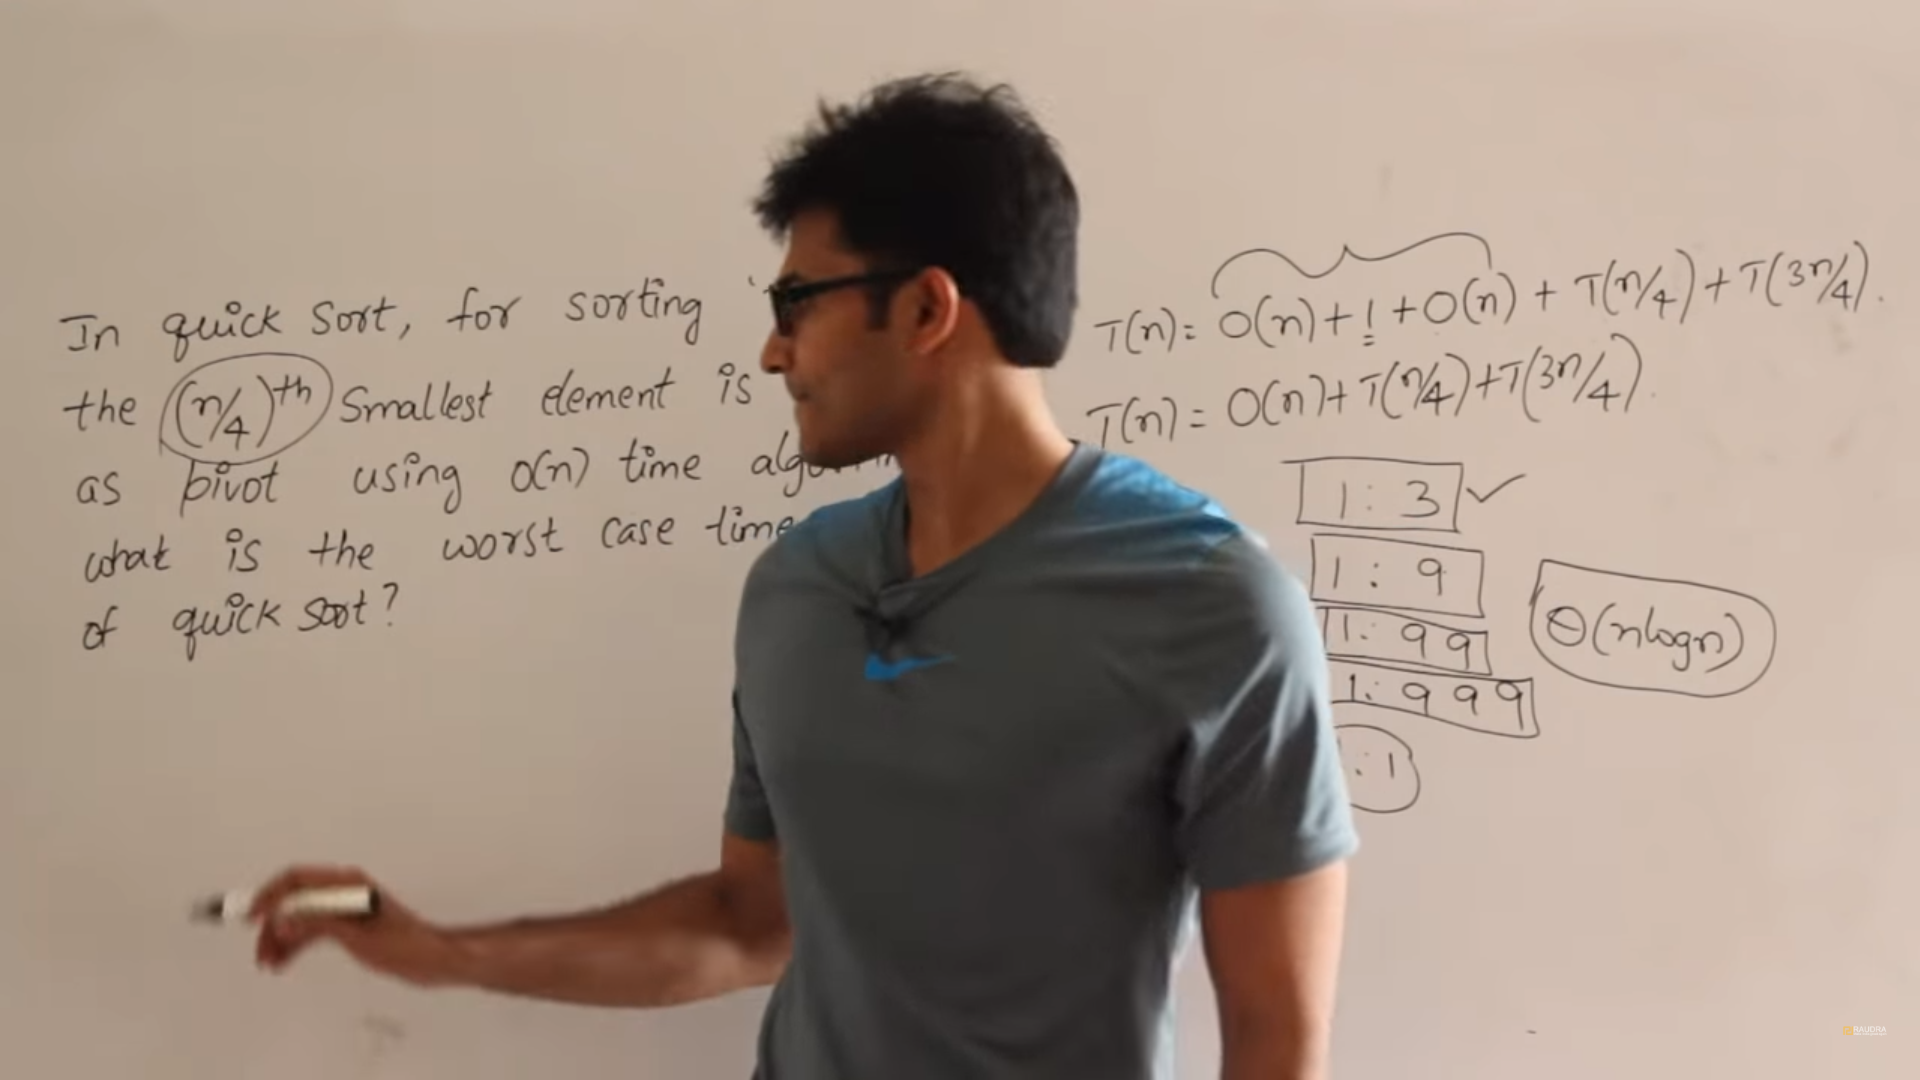 In quick sort, for sorting
the (n/4)th smallest element is
as pivot using O(n) time
what is the worst case time
of quick sort?
T(n)= O(n)+1+O(n) + T(n/4)+T(3n/4).
T(n)= O(n)+T(n/4)+T(3n/4).
1:3 ✓
1:9
1:99
1:999
:1
Θ(nlogn)
RAUDRA